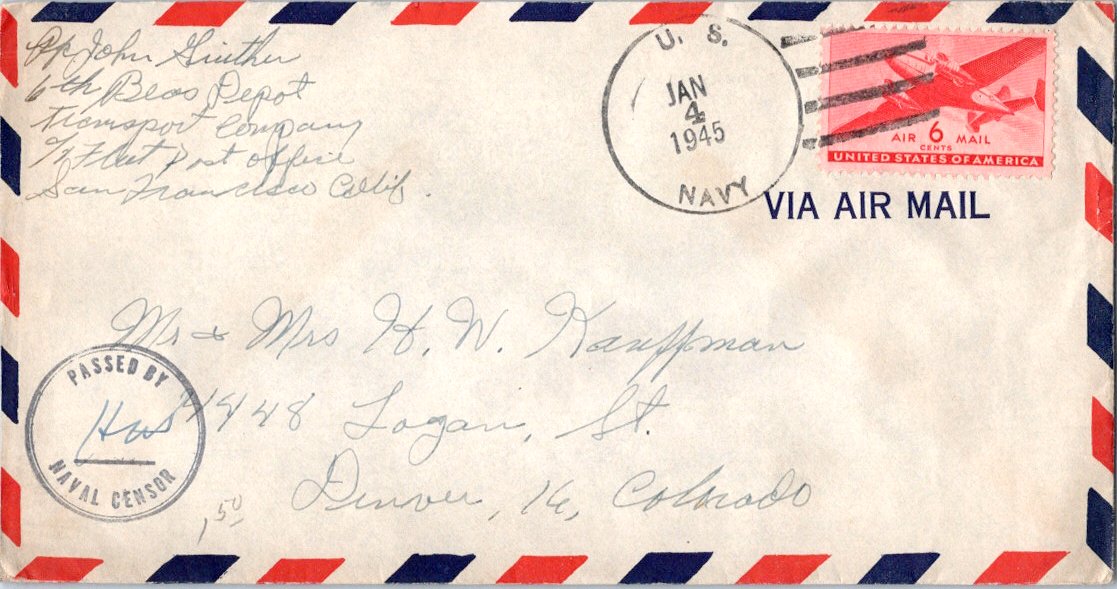 John Ginther
6th Base Depot
Transport Company
℅ Fleet Post Office
San Francisco Calif.
U. S.
JAN
4
1945
NAVY
AIR 6 MAIL
CENTS
UNITED STATES OF AMERICA
VIA AIR MAIL
Mr & Mrs H. W. Kauffman
4448 Logan, St.
Denver, 16, Colorado
PASSED BY
NAVAL CENSOR
.50